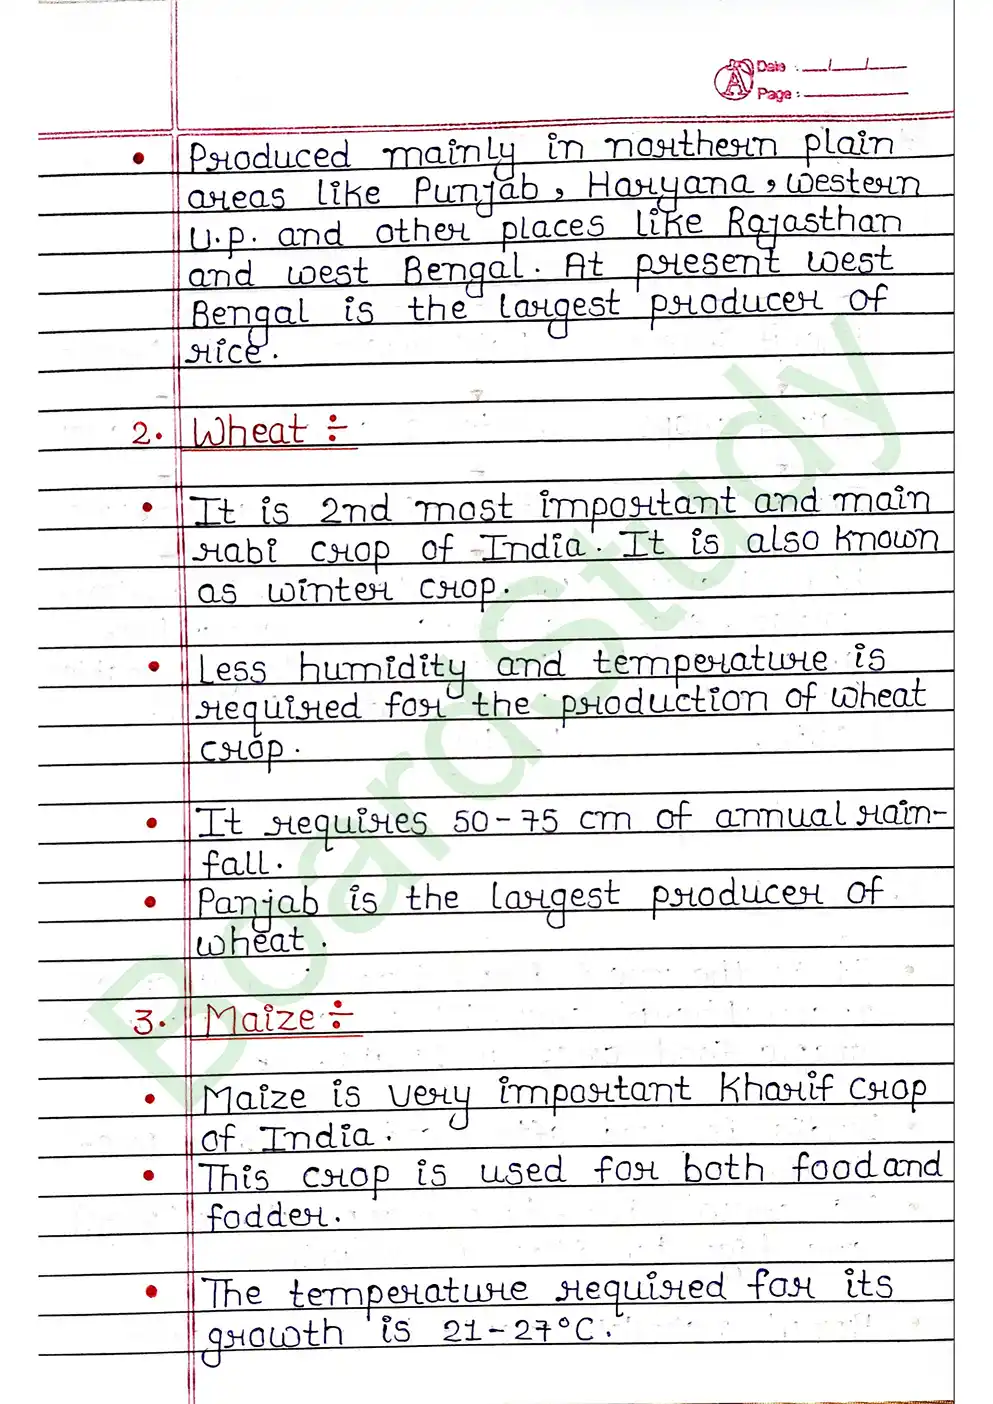 Date : __/__/__
Page : ________
• Produced mainly in northern plain
areas like Punjab, Haryana, western
U.P. and other places like Rajasthan
and west Bengal. At present west
Bengal is the largest producer of
rice.
2. Wheat ÷
• It is 2nd most important and main
rabi crop of India. It is also known
as winter crop.
• Less humidity and temperature is
required for the production of wheat
crop.
• It requires 50-75 cm of annual rain-
fall.
• Panjab is the largest producer of
wheat.
3. Maize ÷
• Maize is very important Kharif crop
of India.
• This crop is used for both food and
fodder.
• The temperature required for its
growth is 21-27°C.
BoardStudy